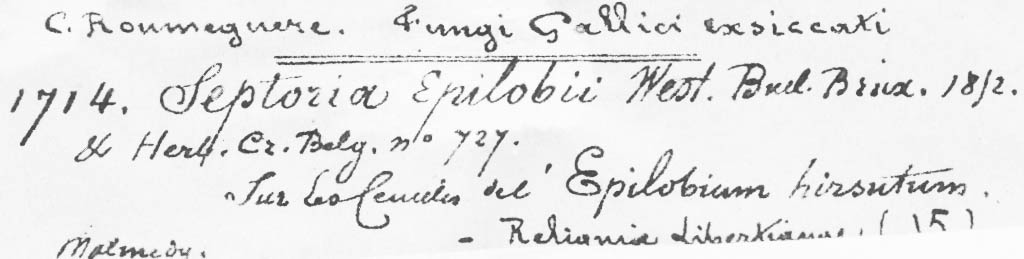 C. Roumeguere. Fungi Gallici exsiccati
1714. Septoria Epilobii West. Bull. Brux. 1852.
& Herb. Cr. Belg. nº 727.
Sur Les del' Epilobium hirsutum.
- Reliquiæ Libertianae. (15)
Malmedy.